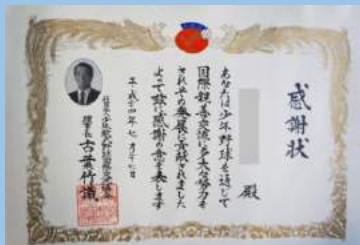 感謝状
殿
あなたは少年野球を通して
国際親善交流に多大な努力を
され其の発展に貢献されました
よって茲に感謝の意を表します
平成二十四年 七月二十七日
理事長 古葉竹識